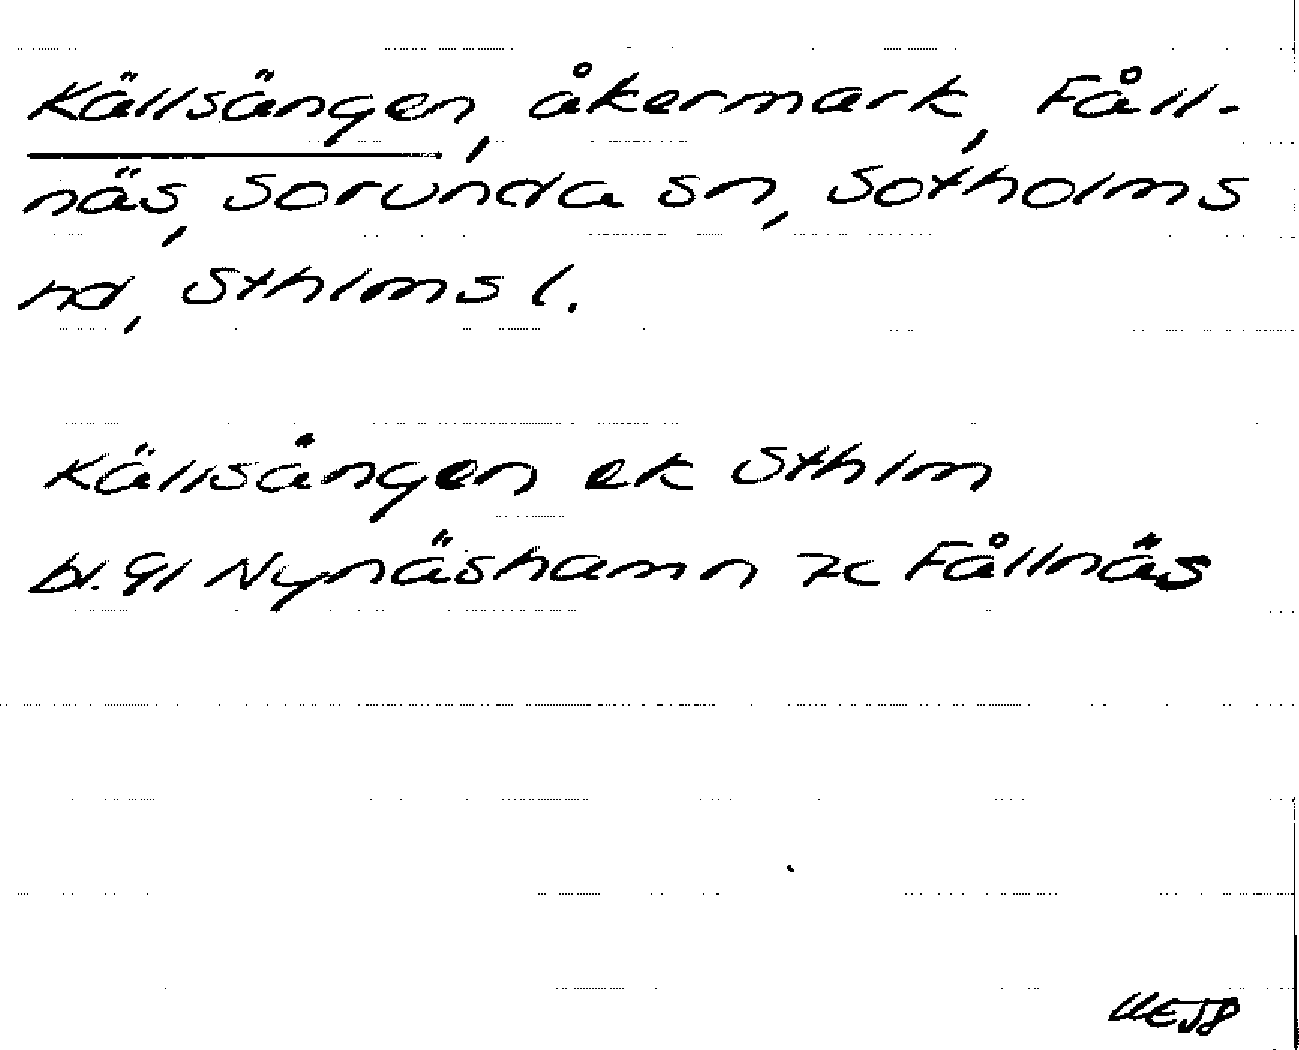 Källsängen, åkermark, Fåll-
näs, Sorunda sn, Sotholms
hd, Sthlms l.
Källsången ek Sthlm
bl. 91 Nynäshamn 7c Fållnäs